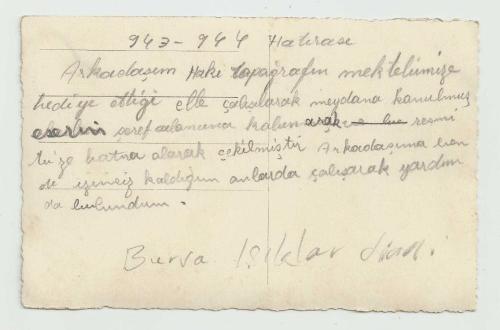 943-944 Hatırası
Arkadaşım Hakkı topağrafın mektebimize
hediye ettiği elle çalışılarak meydana konulmuş
eserin şeref alanına resmi
bize hatıra olarak çekilmiştir Arkadaşıma ben
de izinsiz kaldığım anlarda çalışarak yardım
da bulundum.
Bursa Işıklar Lisesi